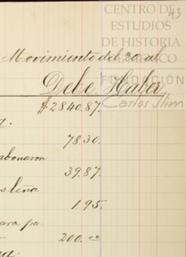 CENTRO DE
ESTUDIOS
DE HISTORIA
DE MÉXICO
FUNDACIÓN
Carlos Slim
43
Movimiento del 20 al
Debe Haber
$2840.87.
78.30.
39.87.
leña
1.95.
para pa
200.00